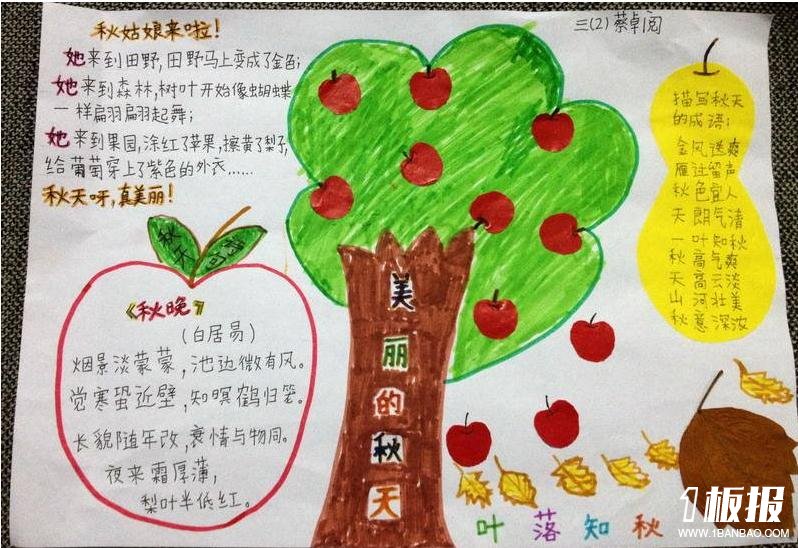 秋姑娘来啦!
她来到田野,田野马上变成了金色;
她来到森林,树叶开始像蝴蝶
一样扁羽扁羽起舞;
她来到果园,涂红了苹果,擦黄了梨子,
给葡萄穿上了紫色的外衣……
秋天呀,真美丽!
三(2)蔡卓阅
描写秋天
的成语:
金风送爽
雁过留声
秋色宜人
天朗气清
一叶知秋
秋高气爽
天高云淡
山河壮美
秋意深浓
秋天
《秋晚》
(白居易)
烟景淡蒙蒙,池边微有风。
觉寒蛩近壁,知暝鹤归笼。
长貌随年改,衰情与物同。
夜来霜厚薄,
梨叶半低红。
美
丽
的
秋
天
叶落知秋
1板报
WWW.1BANBAO.COM